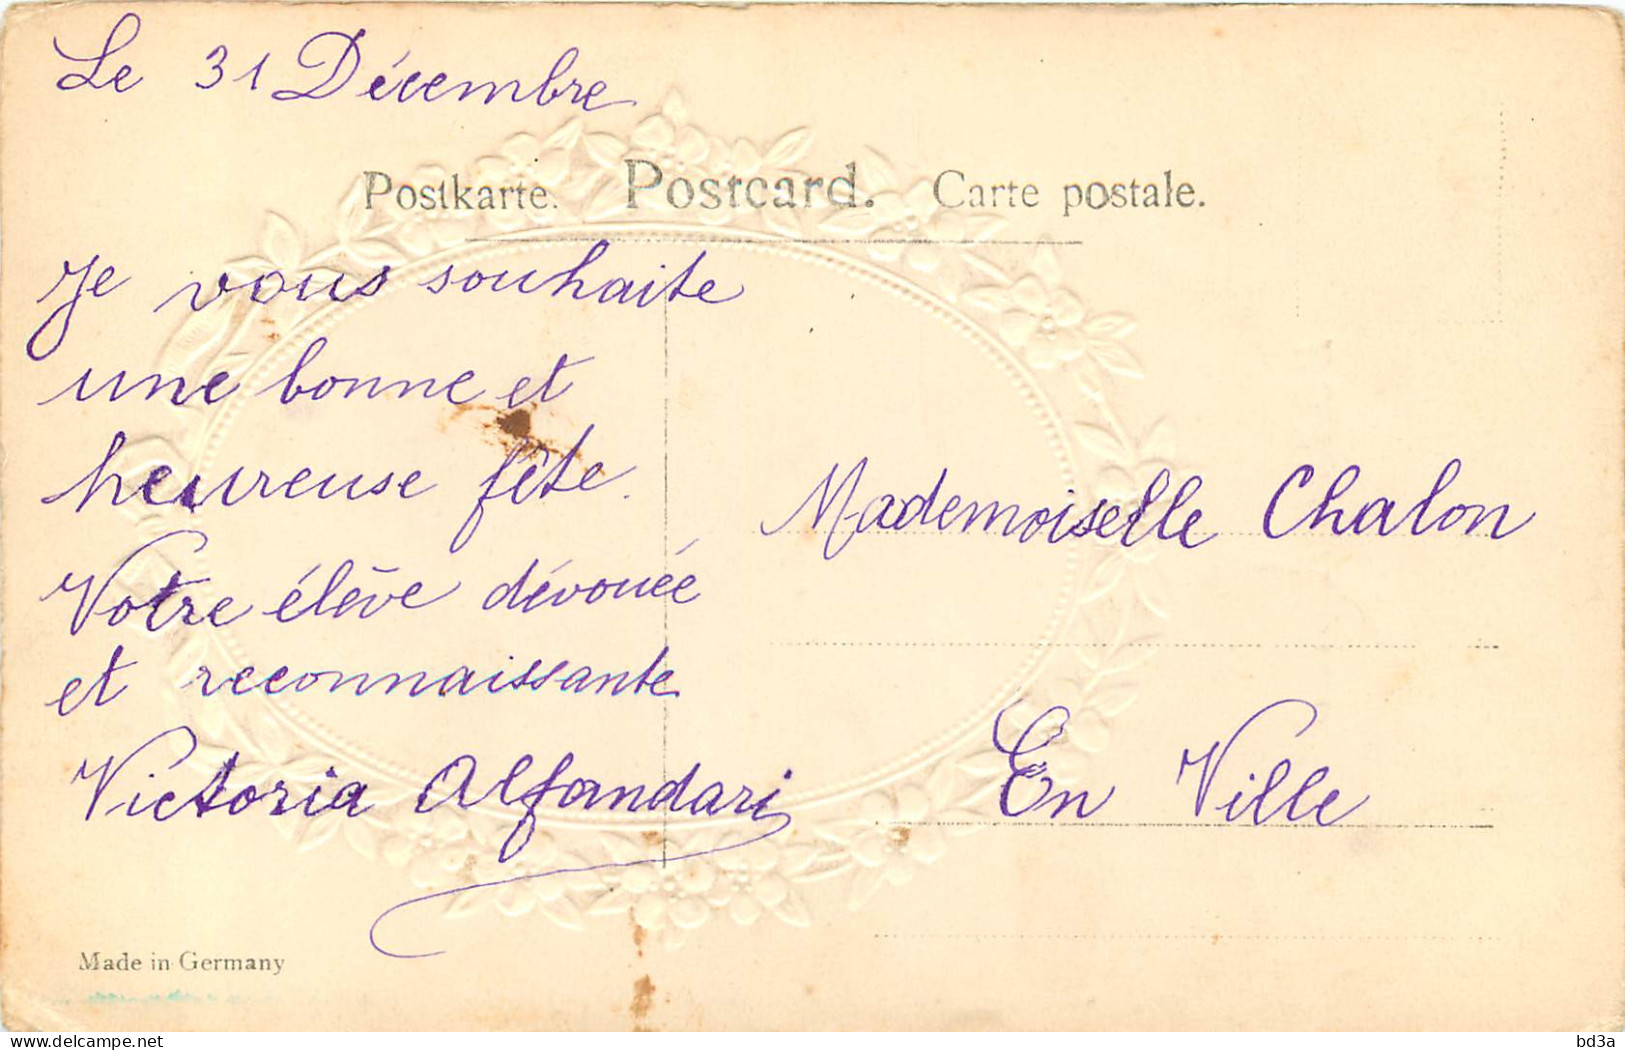 Le 31 Décembre
Postkarte. Postcard. Carte postale.
Je vous souhaite
une bonne et
heureuse fête.
Votre élève dévouée
et reconnaissante
Victoria Alfandari
Mademoiselle Chalon
En Ville
Made in Germany
www.delcampe.net
bd3a